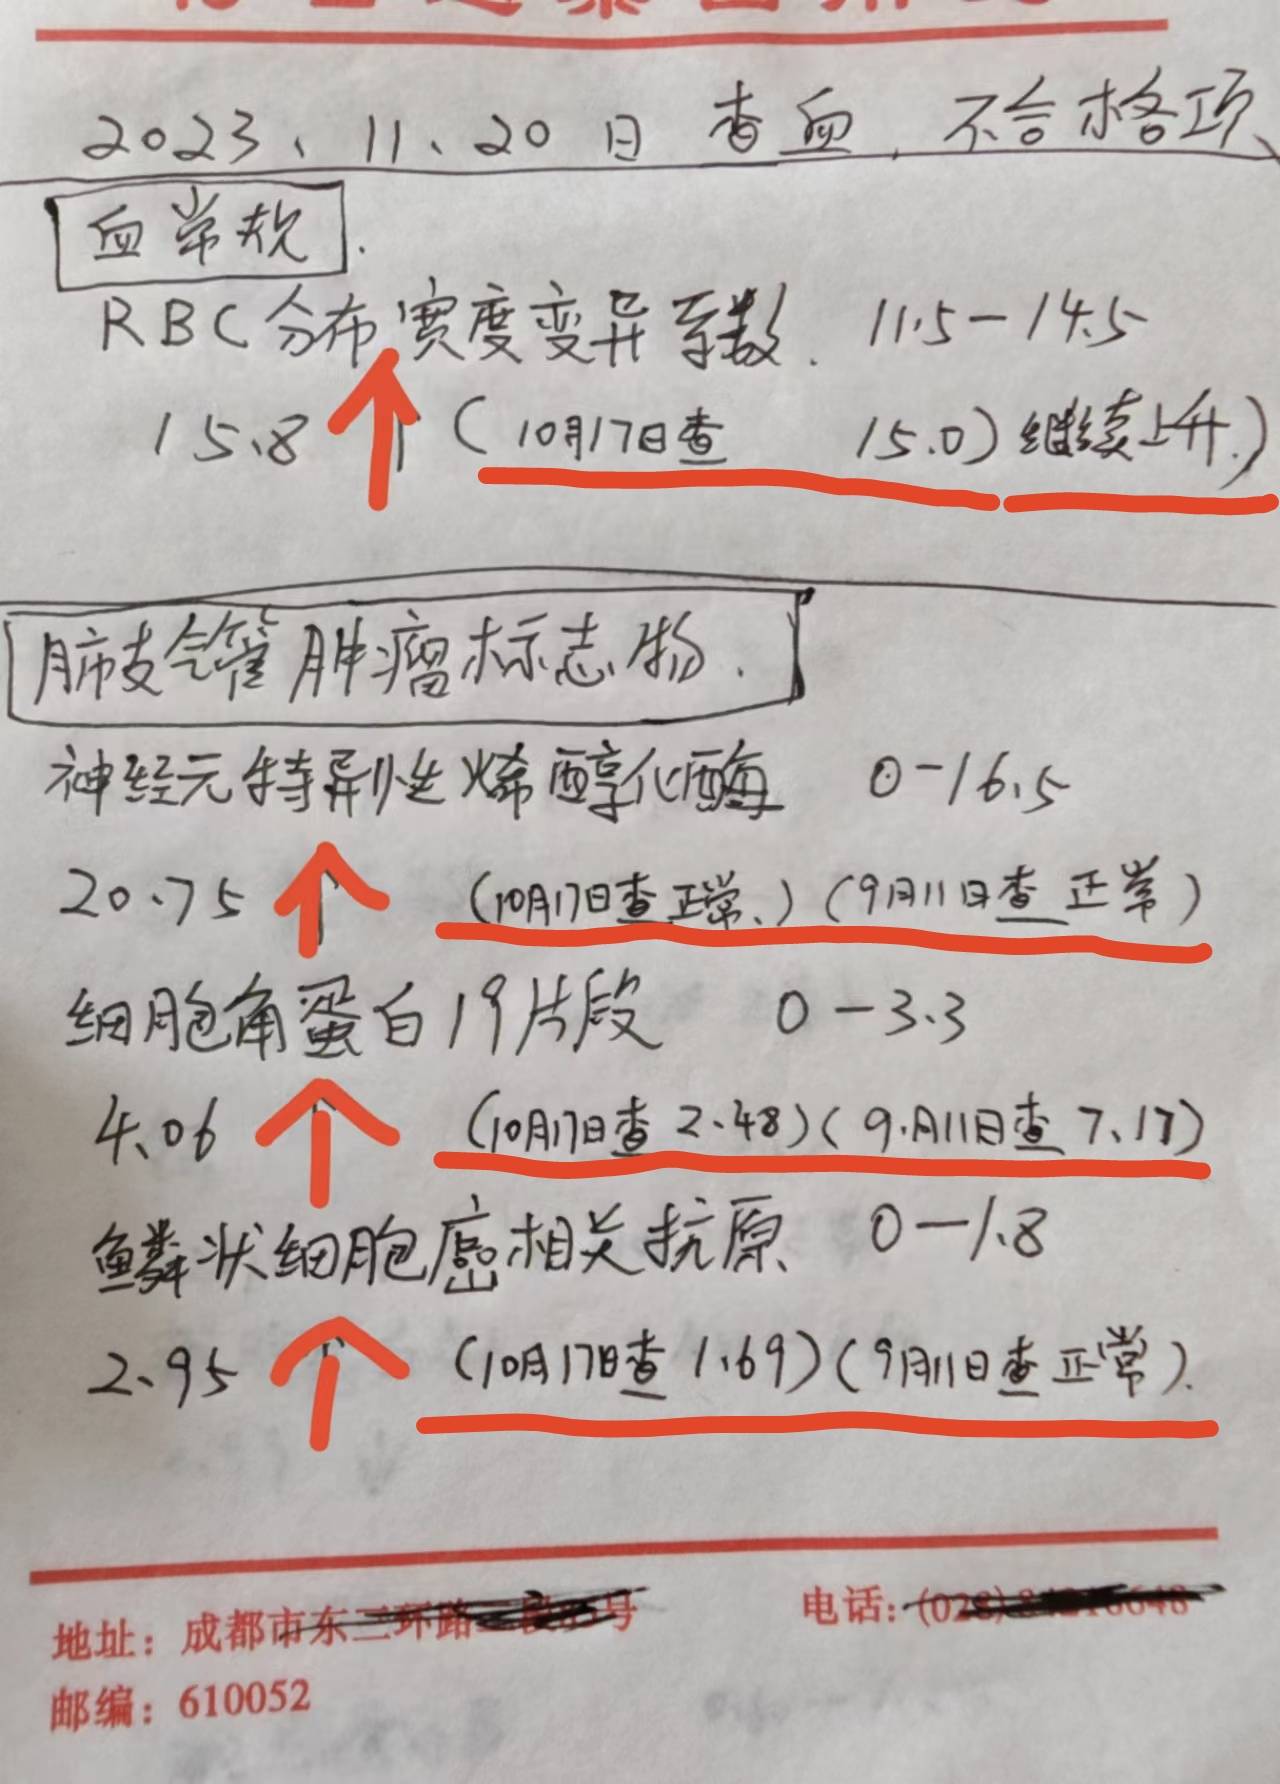 2023、11、20日 查血、不合格项、
血常规.
RBC分布宽度变异系数. 11.5-14.5
15.8↑ (10月17日查 15.0)继续上升.)
肺支气管肿瘤标志物.
神经元特异性烯醇化酶 0-16.5
20.75↑ (10月17日查正常、) (9月11日查正常)
细胞角蛋白19片段 0-3.3
4.06↑ (10月17日查 2.48) (9.月11日查 7.17)
鳞状细胞癌相关抗原 0-1.8
2.95↑ (10月17日查 1.69) (9月11日查正常).
地址：成都市东二环路 号
电话：(028)
邮编：610052